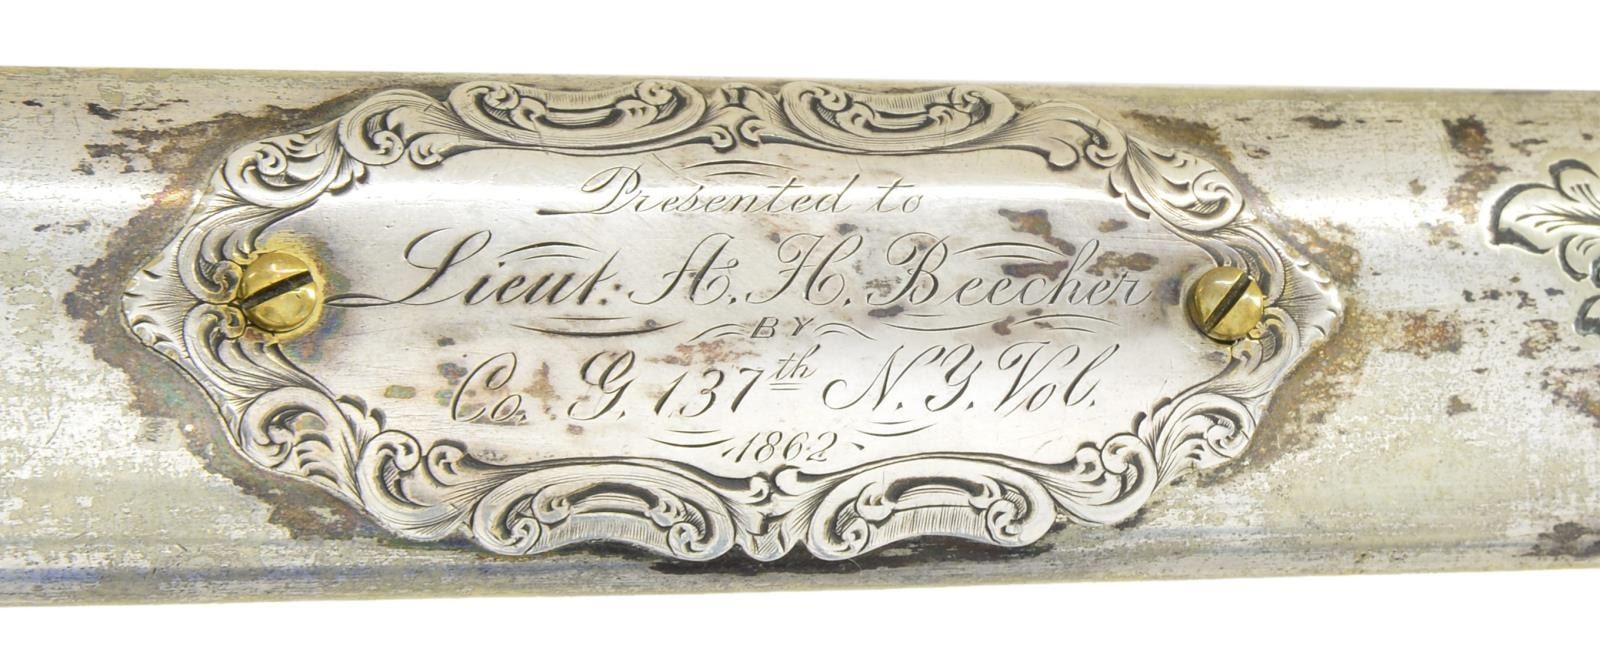 Presented to
Lieut. A. H. Beecher
BY
Co. G. 137th N.Y. Vol.
1862